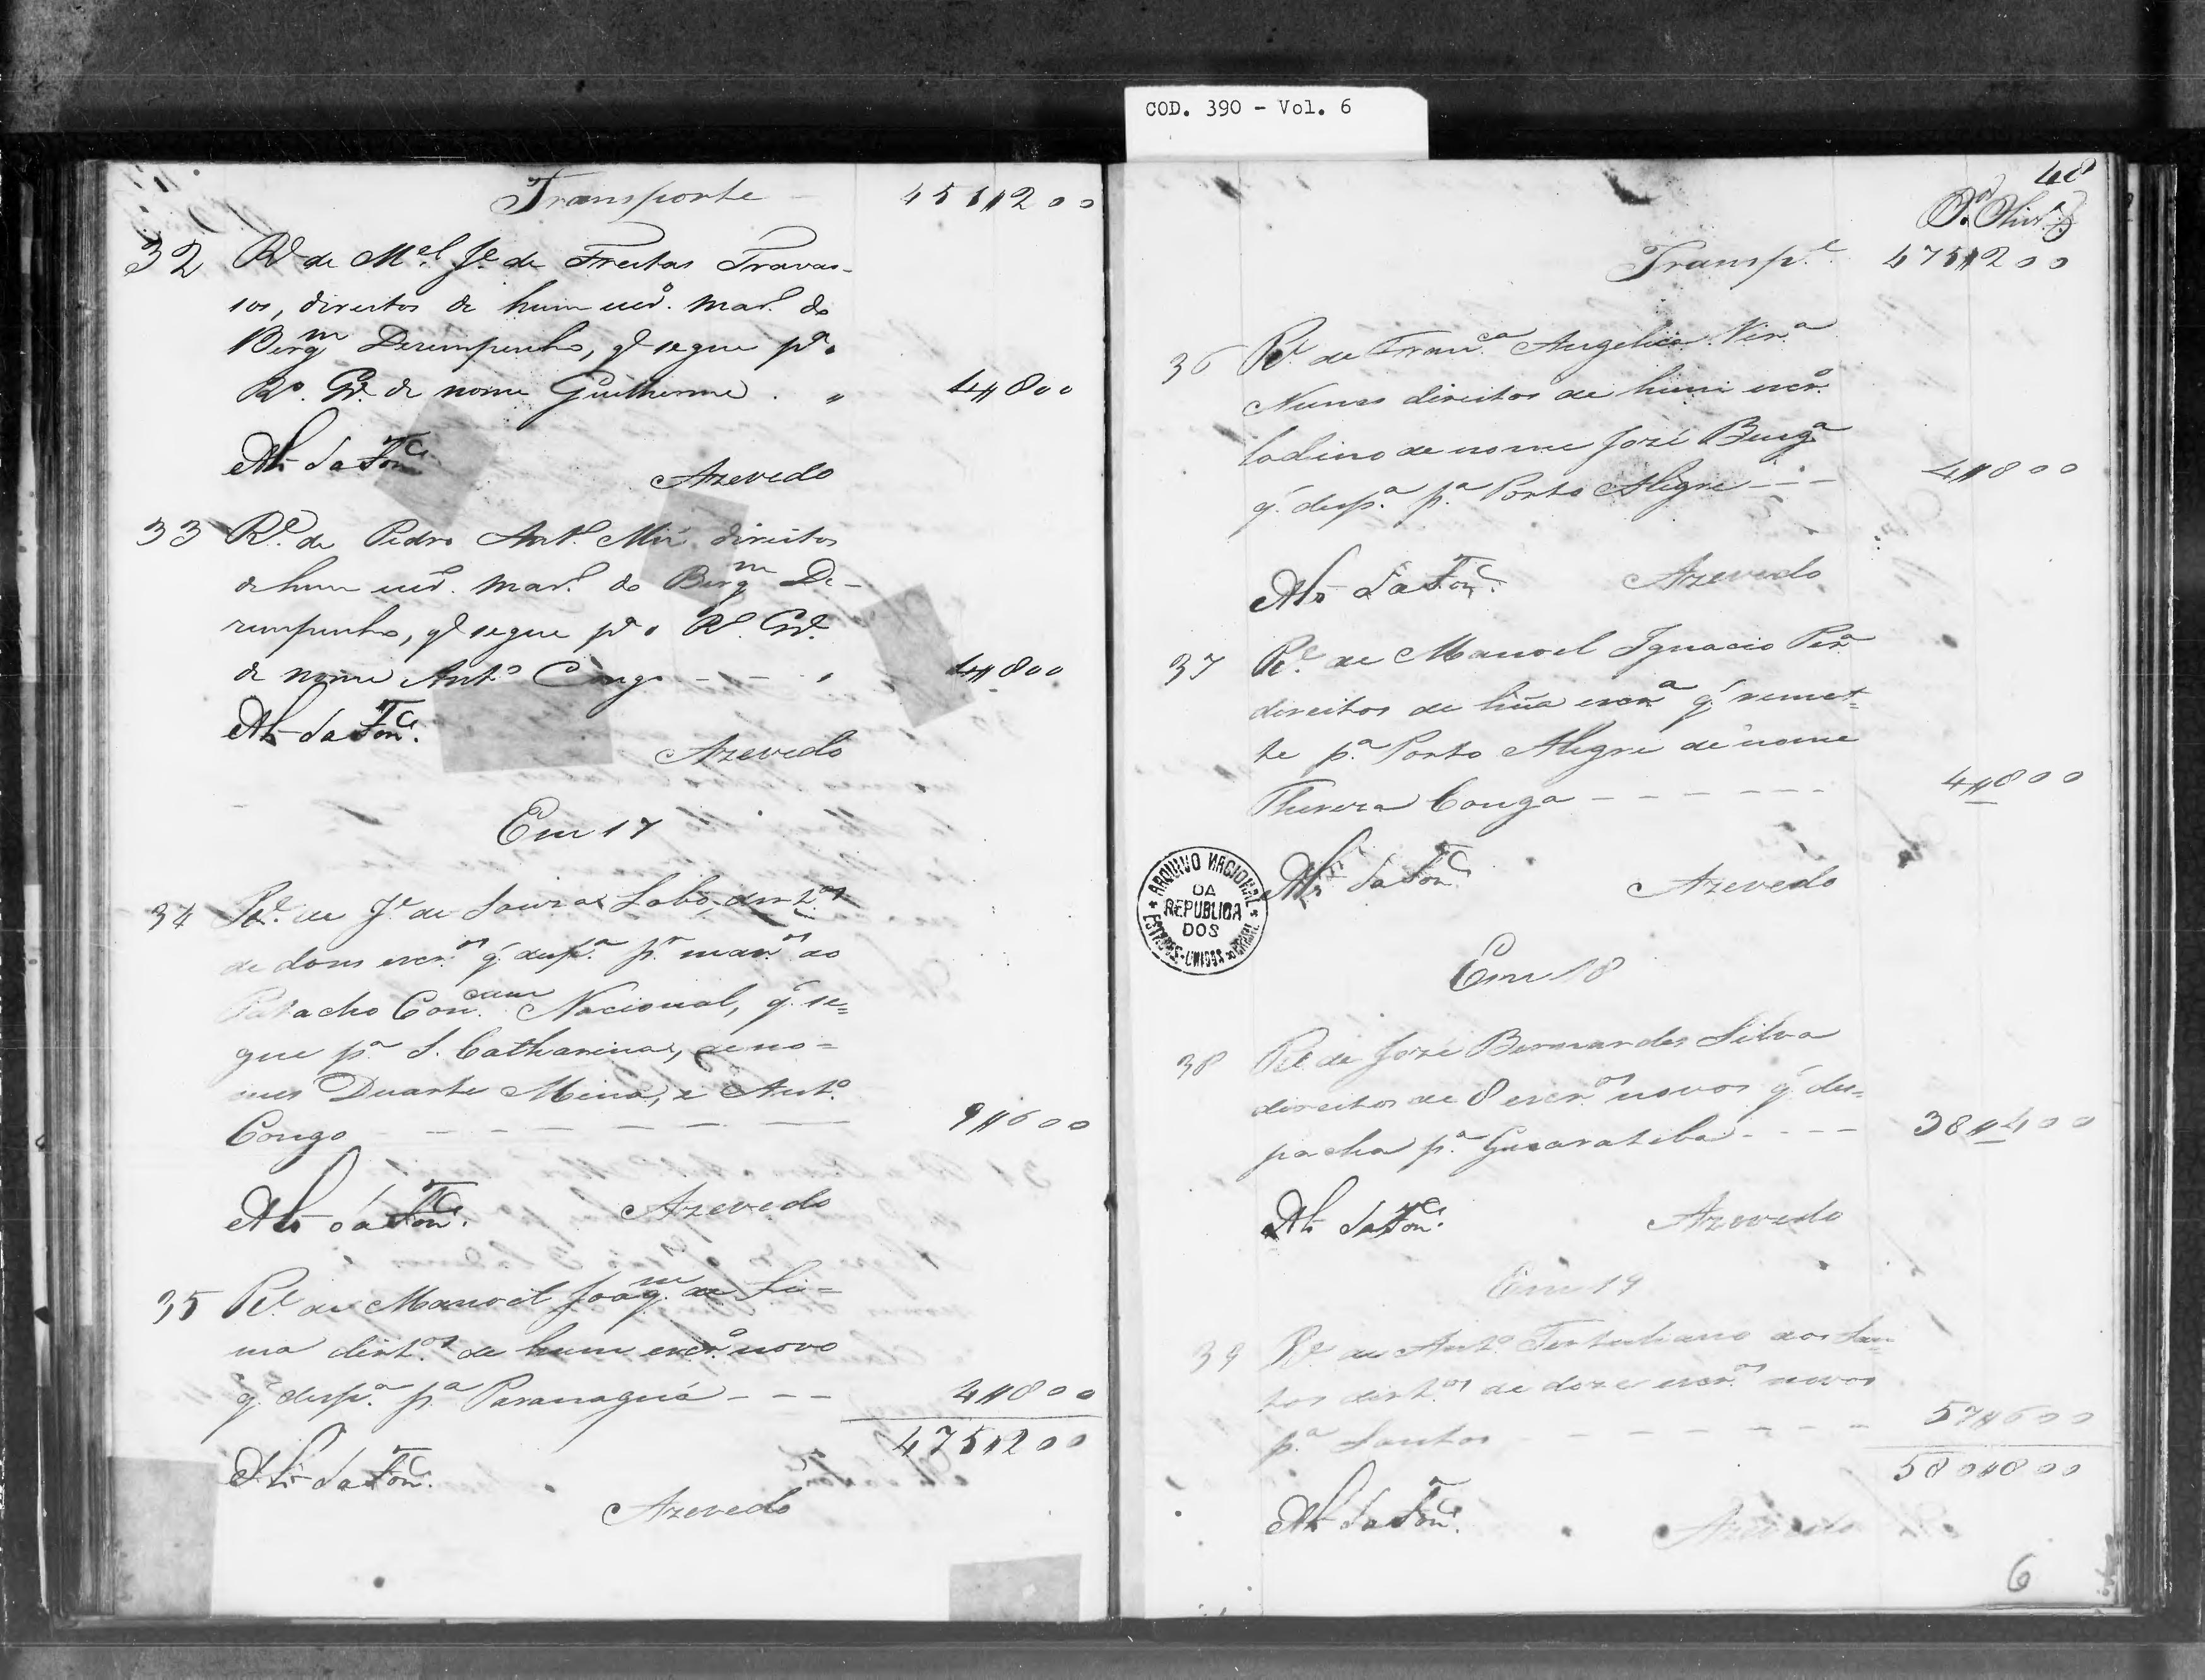 COD. 390 - Vol. 6
Transporte 451#200
32 Rº de Mel Je de Freitas Travas-
sos, direitos de hum escrº. marº. do
Bergm Dezempenho, q segue pª o
Rº. Gde. de nome Guilherme . " 4#800
Az da Fonca
Azevedo
33 Rº. de Pedro Antº direitos
de hum escrº. marº. do Bergm De-
zempenho, q segue pª o Rº. Gde.
de nome Antº Congo - - - 4#800
Az da Fonca.
Azevedo
Em 17
34 Rº. de Je de Souza Lobo, dirtos
de dous escros q' despª. pª maros do
Patacho Nacional, q' se=
gue pª S. Catharina, de no=
mes Duarte Mina, e Antº.
Congo - - - - - - - 9#600
Az da Fonca.
Azevedo
35 Rº de Manoel Joaqm de Li=
ma dirtos de hum escrº novo
q' despª. pª Paranaguá - - - 4#800
475#200
Az da Fonca.
Azevedo
48
Transpe 475#200
36 Rº de Francª Angelica Virª
Nunes direitos de hum escrº.
ladino de nome José Bengª
q' despª. pª Porto Alegre - - - 4#800
Az da Fonca.
Azevedo
37 Rº de Manoel Ignacio Perª
direitos de hũa escrª q' remet=
te pª Porto Alegre de nome
Thereza Conga - - - - - - 4#800
Az da Fonca
Azevedo
ARQUIVO NACIONAL
DA
REPUBLICA
DOS
ESTADOS-UNIDOS DO BRASIL
Em 18
38 Rº de José Bernardes Silva
direitos de 8 escros novos q' des=
pacha pª Guaratiba - - - - 38#400
Az da Fonca.
Azevedo
Em 19
39 Rº de Antº Tertuliano dos San=
tos dirtos de doze escros novos
pª Santos - - - - - - - 57#600
580#800
Az da Fonca.
Azevedo
6